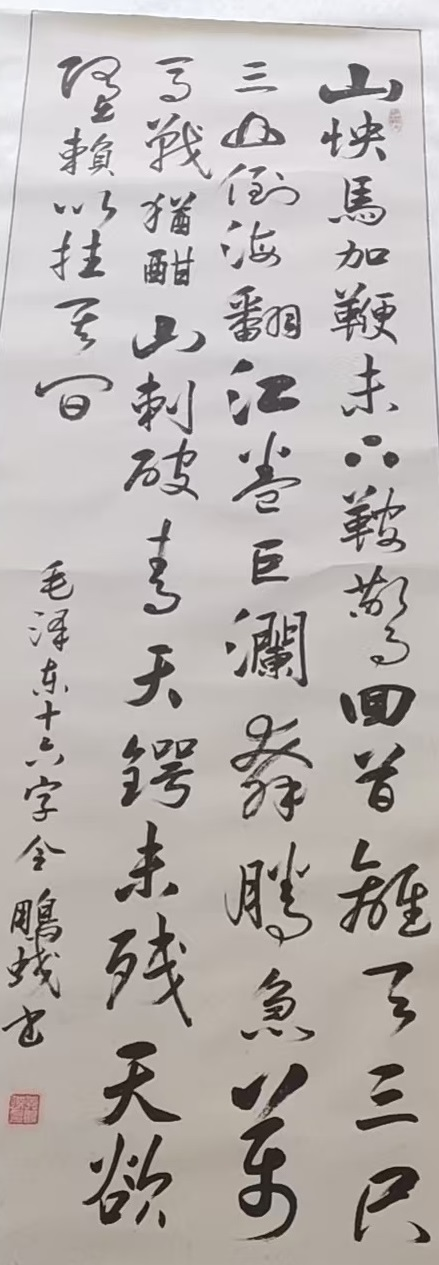 山快馬加鞭未下鞍驚回首離天三尺
三山倒海翻江卷巨瀾奔騰急萬
馬戰猶酣山刺破青天鍔未残天欲
墮賴以拄其间
毛泽东十六字令 鵬书